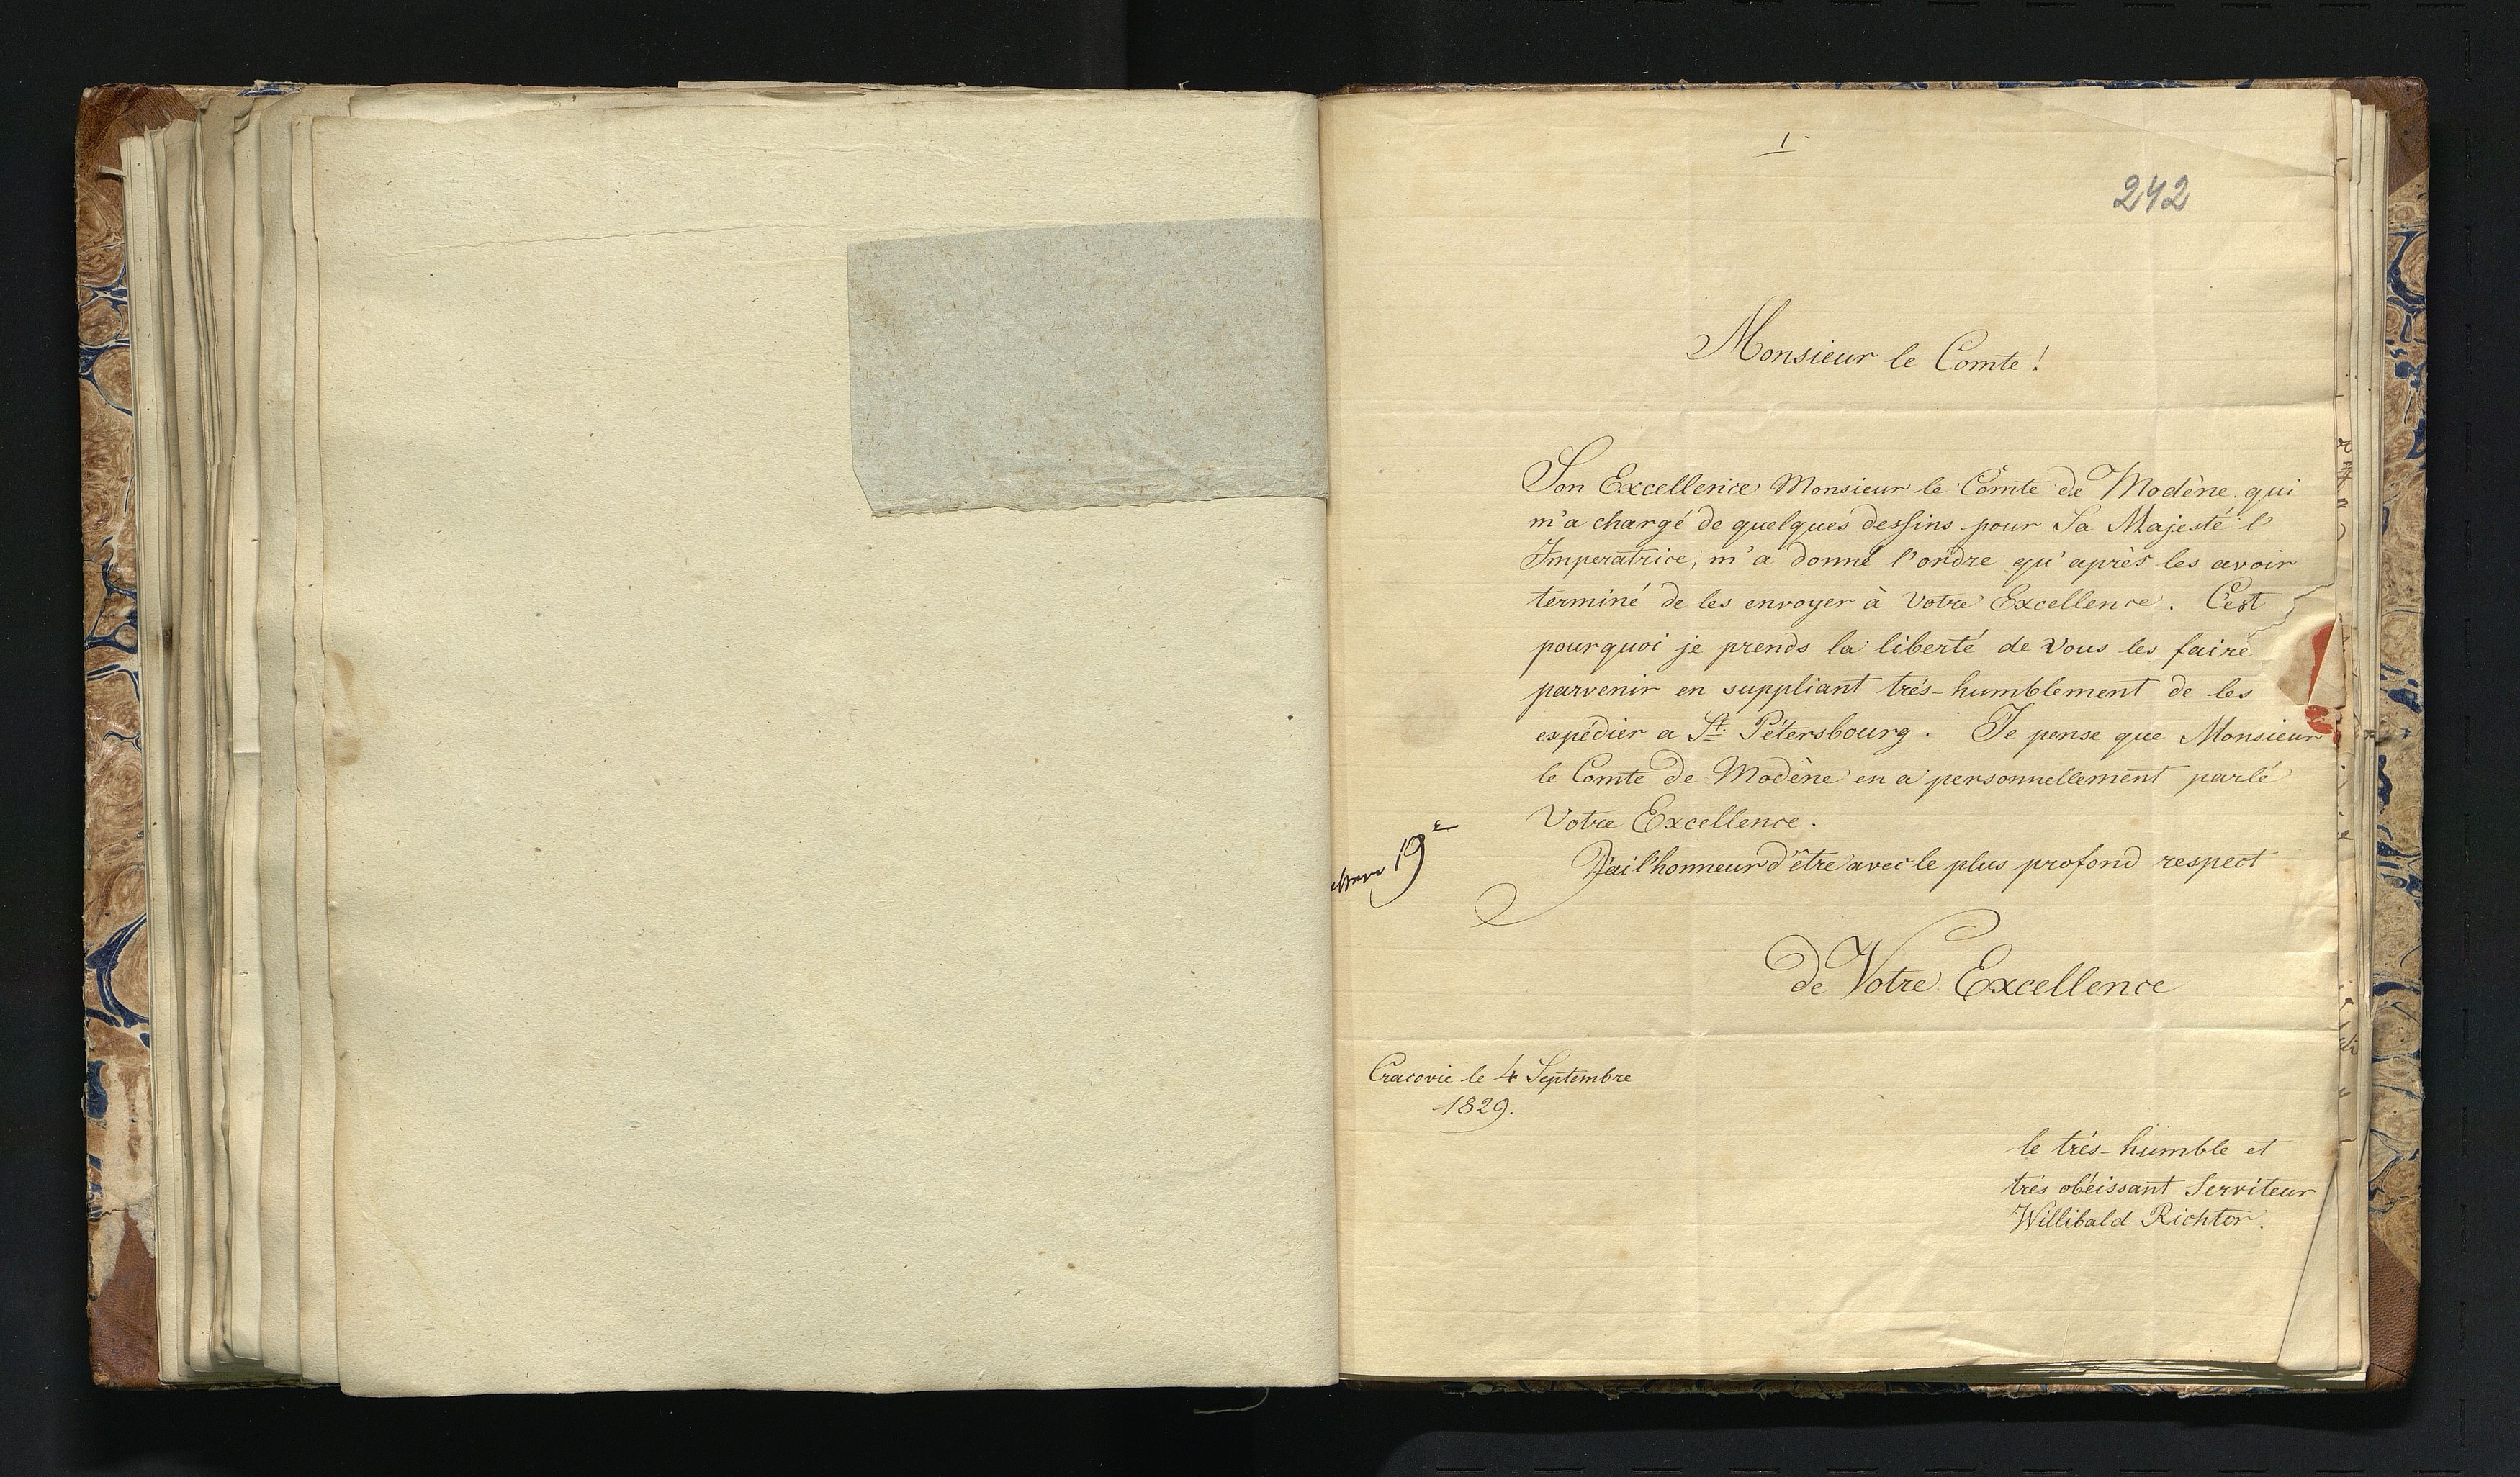 1.
242
Monsieur le Comte!
Son Excellence Monsieur le Comte de Modène qui
m'a chargé de quelques dessins pour Sa Majesté l'
Imperatrice, m'a donné l'ordre qu'après les avoir
terminé de les envoyer à Votre Excellence. C'est
pourquoi je prends la liberté de Vous les faire
parvenir en suppliant trés-humblement de les
expédier a St. Pétersbourg. Je pense que Monsieur
le Comte de Modène en a personnellement parlé
Votre Excellence.
19
J'ai l'honneur d'être avec le plus profond respect
de Votre Excellence
Cracovie le 4 Septembre
1829.
le trés-humble et
trés obéissant Serviteur
Willibald Richter.